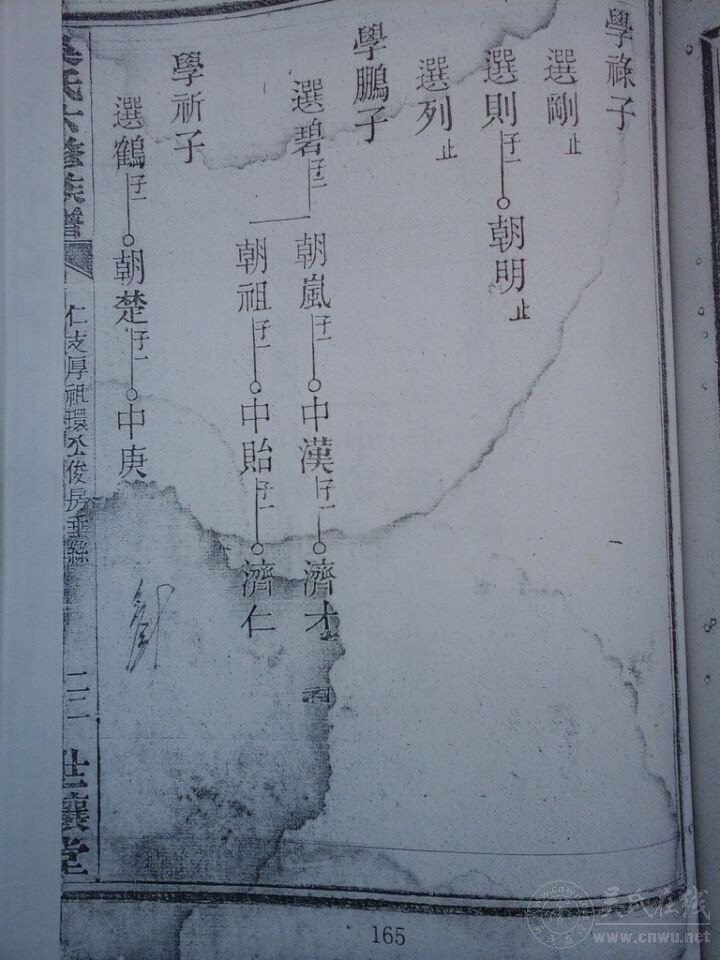 學祿子
選剛止
選則子一 朝明止
選列止
學鵬子
選碧子二 朝嵐子一 中漢子一 濟才
朝祖子一 中貽子一 濟仁
學祈子
選鶴子一 朝楚子一 中庚
吳氏六修族譜
仁支厚祖環公俊房垂絲
世讓堂
165
吳氏在线
www.cnwu.net